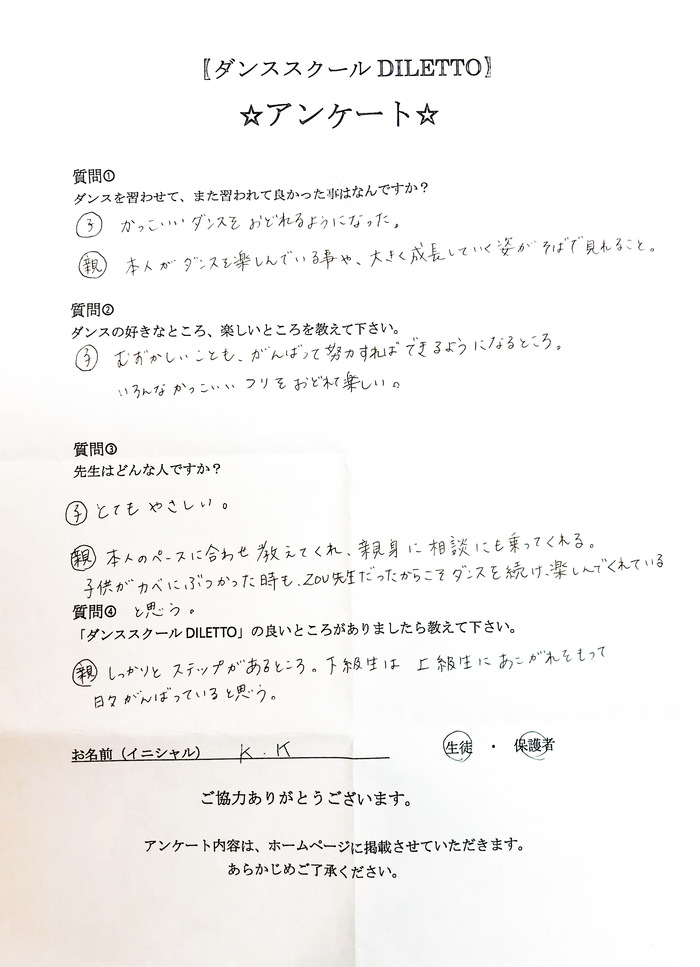 〖ダンススクール DILETTO〗
☆アンケート☆
質問①
ダンスを習わせて、また習われて良かった事はなんですか?
子 かっこいいダンスをおどれるようになった。
親 本人がダンスを楽しんでいる事や、大きく成長していく姿がそばで見れること。
質問②
ダンスの好きなところ、楽しいところを教えて下さい。
子 むずかしいことも、がんばって努力すればできるようになるところ。
いろんなかっこいいフリをおどれて楽しい。
質問③
先生はどんな人ですか?
子 とてもやさしい。
親 本人のペースに合わせ教えてくれ、親身に相談にも乗ってくれる。
子供がカベにぶつかった時も、ZOU先生だったからこそダンスを続け、楽しんでくれている
と思う。
質問④
「ダンススクール DILETTO」の良いところがありましたら教えて下さい。
親 しっかりとステップがあるところ。下級生は上級生にあこがれをもって
日々がんばっていると思う。
お名前(イニシャル) K.K 生徒 ・ 保護者
ご協力ありがとうございます。
アンケート内容は、ホームページに掲載させていただきます。
あらかじめご了承ください。